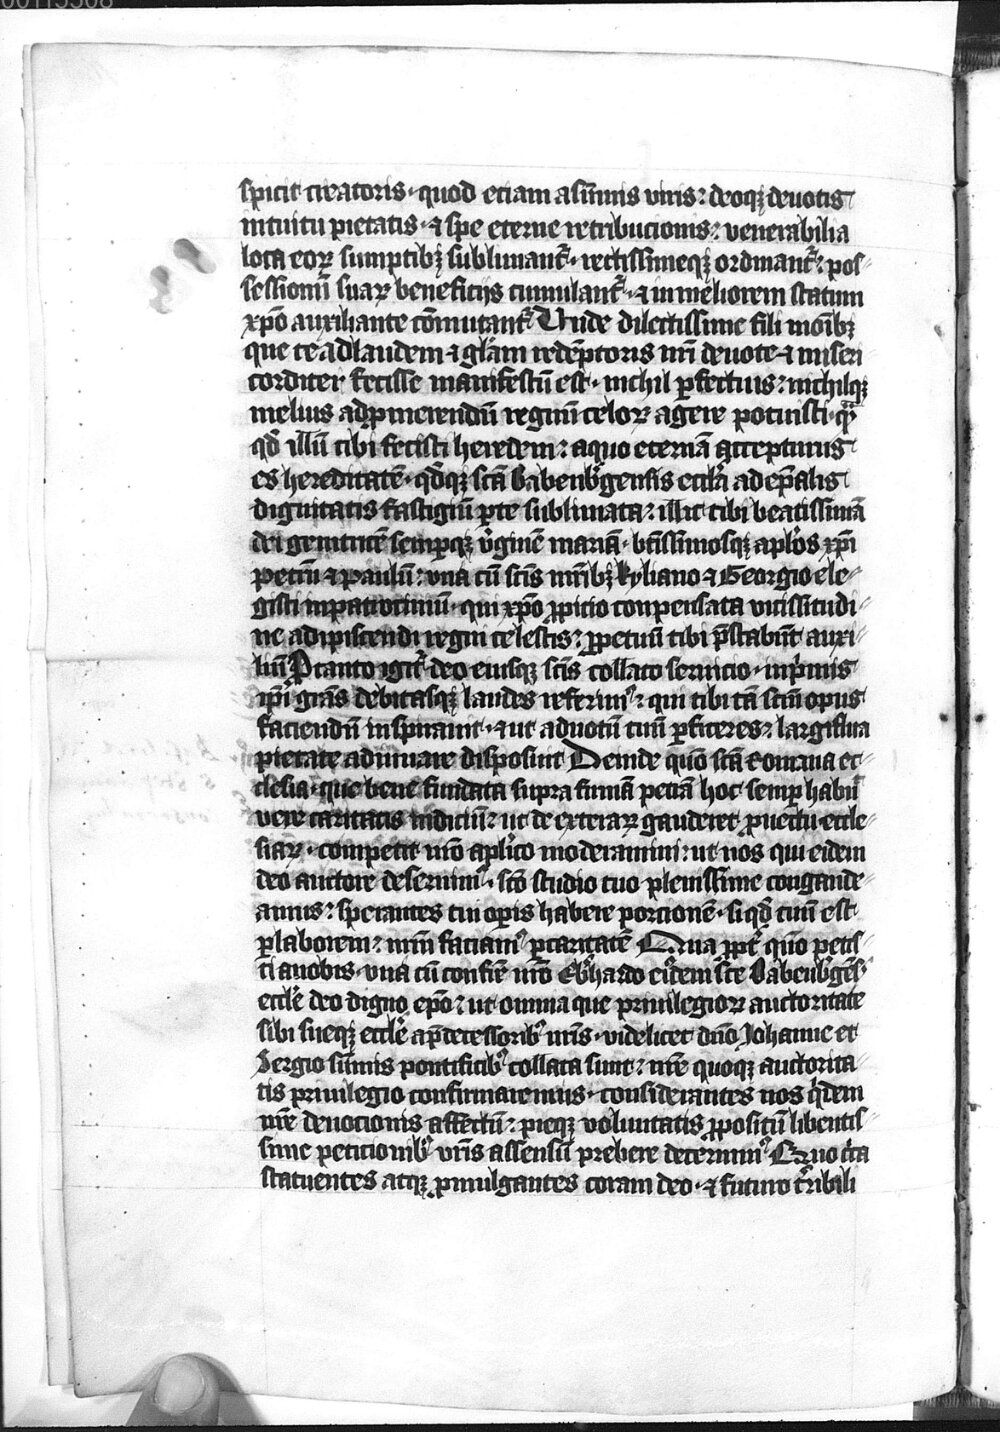 spicit creatoris · quod etiam a sum̄is viris: deoqꝫ deuotis
intuitu pietatis · ⁊ spe eterne retribucionis: venerabilia
loca eoꝝ sumptibꝫ sublimant᷑ · rectissimeqꝫ ordinant᷑: pos-
sessionū suaꝝ beneficijs cumulant᷑ · ⁊ in meliorem statum
xp̄o auxiliante cōmutant᷑ Unde dilectissime fili
que te ad laudem ⁊ glām redēptoris nr̄i deuote ⁊ miseri
corditer fecisse manifestū est · nichil ꝑfectius: nichilqꝫ
melius ad ꝓmerendū regnū celoꝝ agere potuisti ·
qd̄ illū tibi fecisti heredem: a quo eternā accepturus
es hereditatē · qd̄qꝫ scā babenb̄gensis eccl̄a ad ep̄alis
dignitatis fastigiū ꝑ te sublimata: illic tibi beatissimā
dei genitricē semperqꝫ v̄ginē mariā · bt̄issimosqꝫ apl̄os xp̄i
petrū ⁊ paulū: vna cū sc̄is mr̄ibꝫ kyliano ⁊ Georgio ele-
gisti in patrociniū · qui xp̄o ꝓpicio conpensata vicissitudi-
ne adipiscendi regni celestis: ꝑpetuū tibi p̄stabūt auxi-
liū P tanto igit᷑ deo eiusqꝫ sc̄is collato seruicio · inp̄mis
ip̄i grās debitasqꝫ laudes referimꝰ: qui tibi tā scm̄ opus
faciendū inspirauit · ⁊ ut ad uotū tuū ꝑficeres: largiflua
pietate adiuuare disposuit Deinde qm̄ scā romana ec-
clesia · que bene fundata supra firmā petrā hoc semꝑ habū
vere caritatis indiciū: ut de exteraꝝ gauderet ꝓuectu eccle-
siaꝝ · competit nr̄o apl̄ico moderamini: ut nos qui eidem
deo auctore deseruimꝰ · scō studio tuo plenissime congaude-
amus: sperantes tui opis habere porcionē · si qd̄ tuū est
ꝑ laborem: nr̄m faciamꝰ ꝑ caritatē Quia ꝓpt᷑ qm̄ petis-
ti a nobis · vna cū confr̄e nr̄o Eb̄hardo eiꝰdem sc̄e Babenb̄gēs᷑
eccl̄e deo digno ep̄o: ut omnia que priuilegioꝝ auctoritate
sibi sueqꝫ eccl̄e a p̄decessoribꝰ nr̄is · videlicet dn̄o Johanne et
Sergio sum̄is pontificibꝰ collata sunt: nr̄e quoqꝫ auctorita-
tis priuilegio confirmaremus · considerantes nos q̇dem
vr̄e deuocionis affectū: pieqꝫ voluntatis ꝓpositū libentis-
sime peticionibꝰ vr̄is assensū prebere decernimꝰ
statuentes atqꝫ ꝓmulgantes coram deo · ⁊ futuro tr̄ribili